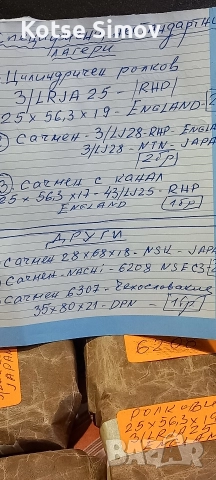 Kotse Simov
лагери
Цилиндричен ролков
3/LRJA 25 - RHP
25 x 56,3 x 19 - ENGLAND
Сачмен - 3/LJ28-RHP- ENGL
3/LJ28 - NTN - JAPA
2бр
③ Сачмен с канал
25 x 56,3 x 17 - 43/LJ25 - RHP
ENGLAND 1бр
ДРУГИ
Сачмен 28x68x18 - NSK - JAPA
Сачмен - NACHI - 6208 NSEC3
Сачмен 6307 - Чехословакия
35x80x21 - DPN - 1бр
JAPA
РОЛКОВ
25 x 56,3 x 1
3/LRJA 25
bazar